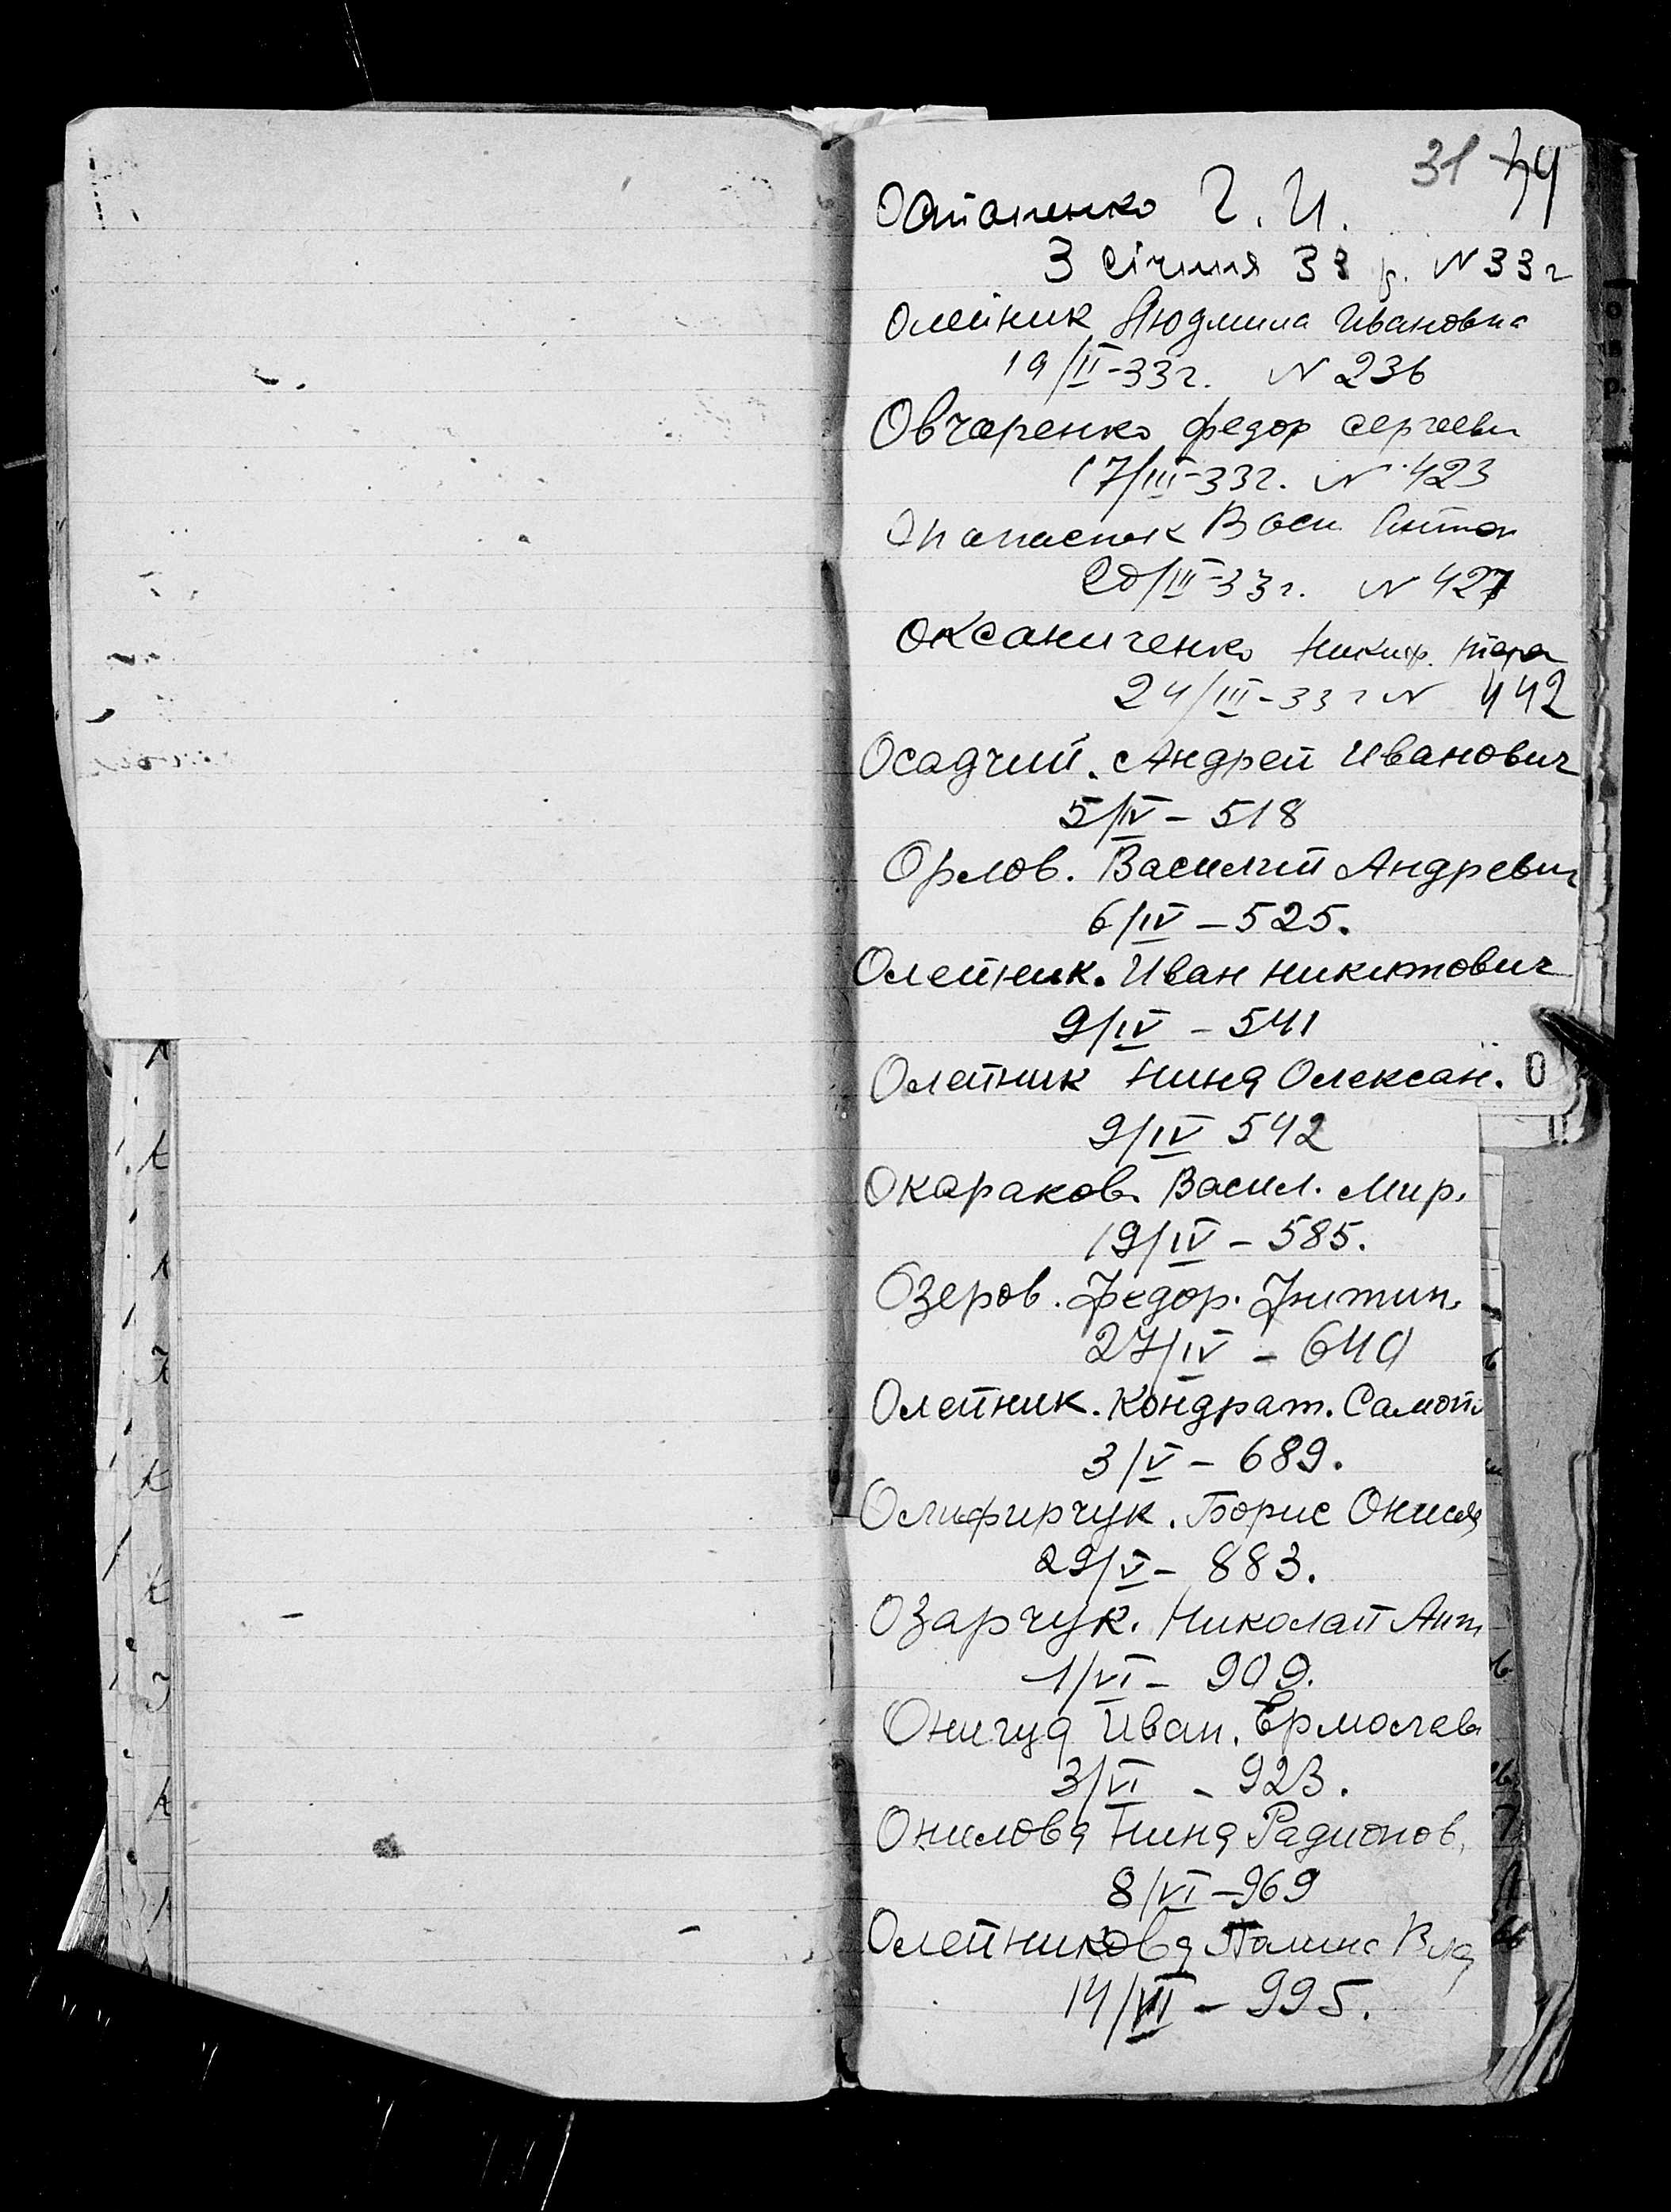 31 44
Остапенко Г. И.
3 січня 33 р. N 33 г
Олейник Людмила Ивановна
19/II-33г. N 236
Овчаренко федор сергеев
17/III-33г. N 423
Опанасюк Васи Антон
20/III-33г. N 427
Оксаниченко Никиф.
24/III-33 г N 442
Осадчий. Андрей Иванович
5/IV - 518
Орлов. Василий Андревич
6/IV - 525.
Олейник. Иван никитович
9/IV - 541
Олейник Нина Олексан. О
9/IV 542
Окараков. Васил. Мир.
19/IV - 585.
Озеров. Федор.
27/IV - 640
Олейник. Кондрат. Самой
3/V - 689.
Олифирчук. Борис Онися
29/V - 883.
Озарчук. Николай Ант
1/VI - 909.
Оничуд Иван. Ермолаев
3/VI - 923.
Онилова Нина Радионов.
8/VI - 969
Олейникова Полина Вла
14/VI - 995.